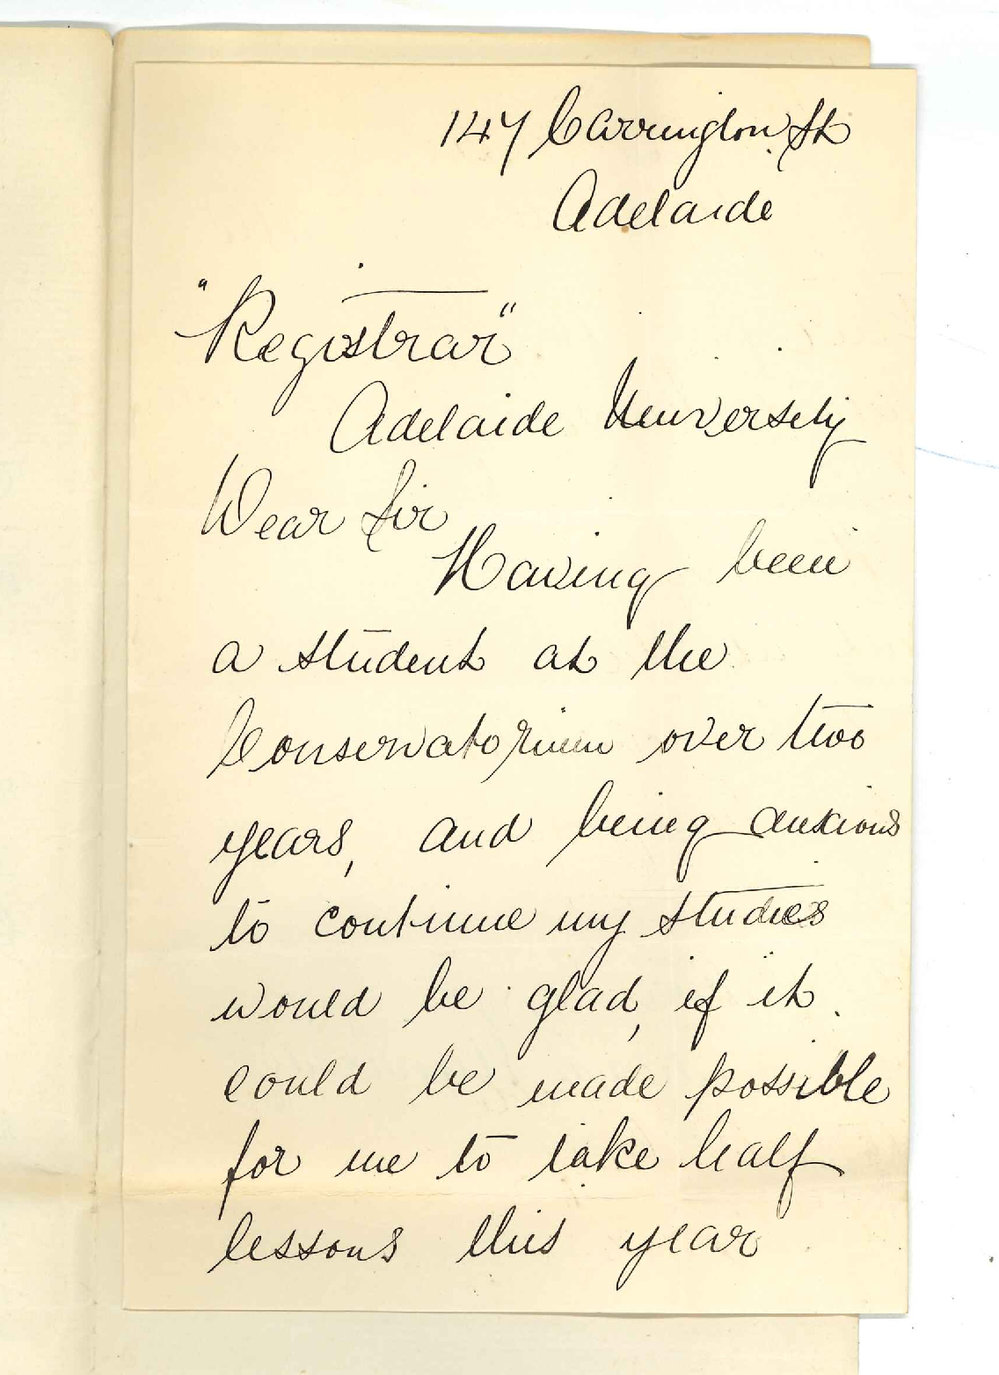 147 Carrington St
Adelaide
"Registrar"
Adelaide University
Dear Sir
Having been
a student at the
Conservatorium over two
years, and being anxious
to continue my studies
would be glad, if it
could be made possible
for me to take half
lessons this year